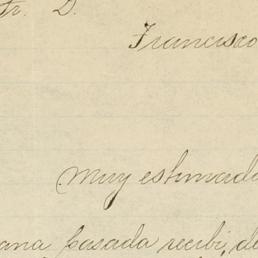 Sr. D.
Francisco
Muy estimado
ana pasada recibi, de